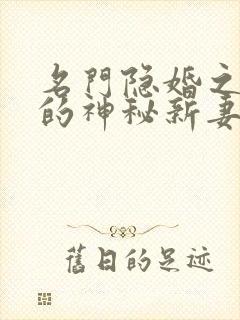 名門隐婚之
的神秘新妻
舊日的足迹